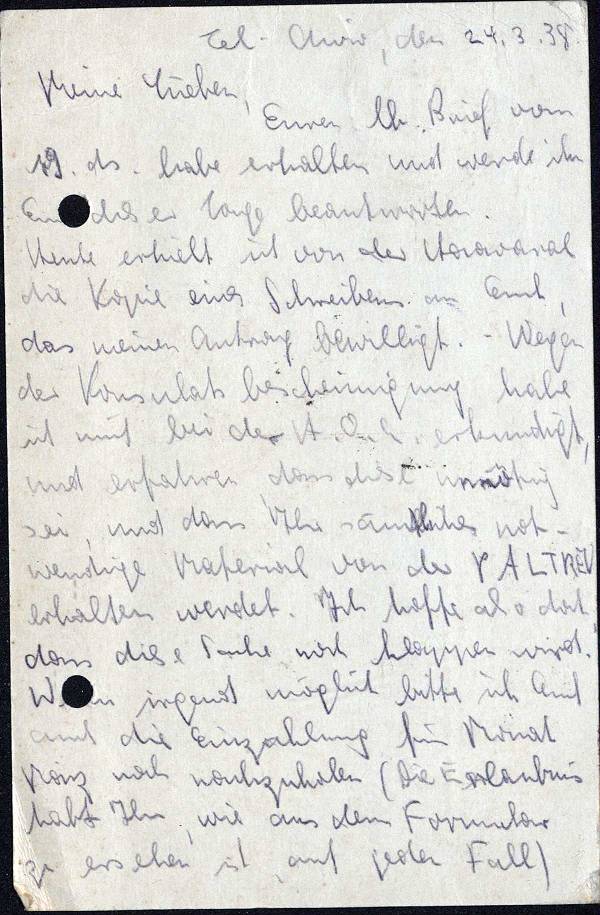 Tel-Aviv, den 24.3.38.
Meine Lieben,
Euren lb. Brief vom
19. ds. habe erhalten und werde ihn
dieser Tage beantworten.
Heute erhielt ich von der Haavarah
die Kopie eines Schreibens an Euch,
das meinen Antrag bewilligt. - Wegen
der Konsulatsbescheinigung habe
ich mich bei der H.O.G. erkundigt,
und erfahren, dass diese unnötig
sei, und dass Ihr sämtliches not-
wendige Material von der PALTREU
erhalten werdet. Ich hoffe also dort
dass diese Sache noch klappen wird.
Wenn irgend möglich bitte ich Euch
auch die Einzahlung für Monat
März noch nachzuholen (Die Erlaubnis
habt Ihr, wie aus dem Formular
zu ersehen ist, auf jeden Fall)